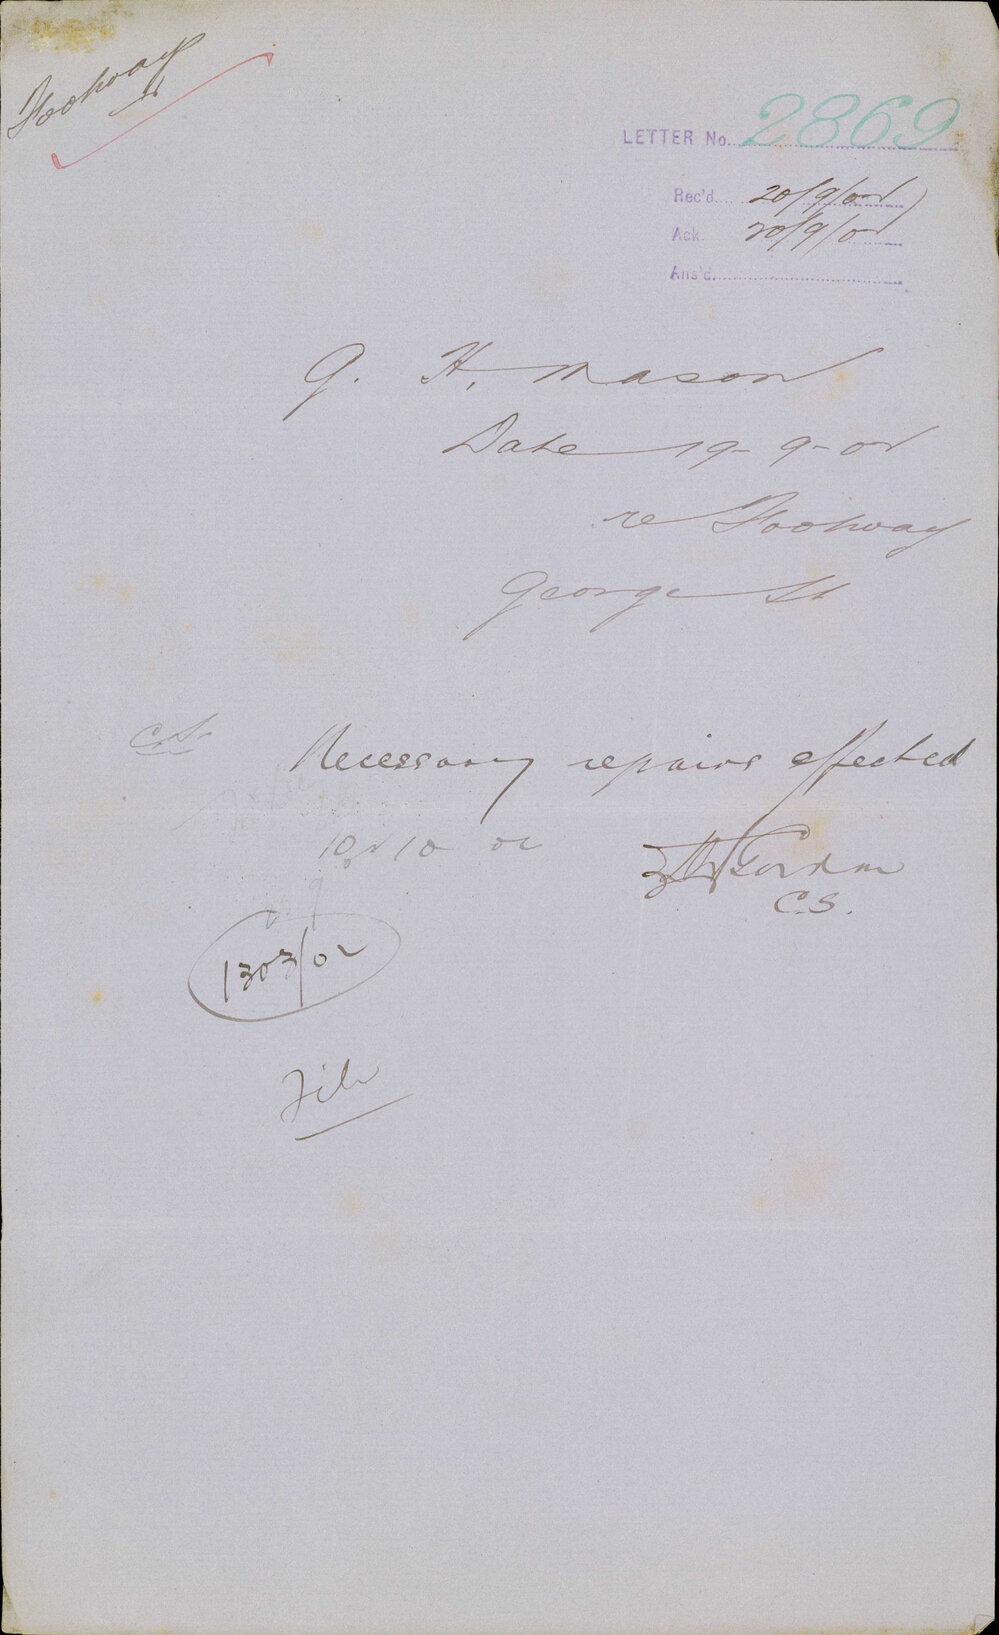 Footway
LETTER No. 2869
Rec'd. 20/9/01
Ack. 20/9/01
Ans'd.
G. H. Mason
Date 19-9-01
re Footway
George St
C.S. Necessary repairs effected
Gordon
C.S.
1303/02
File